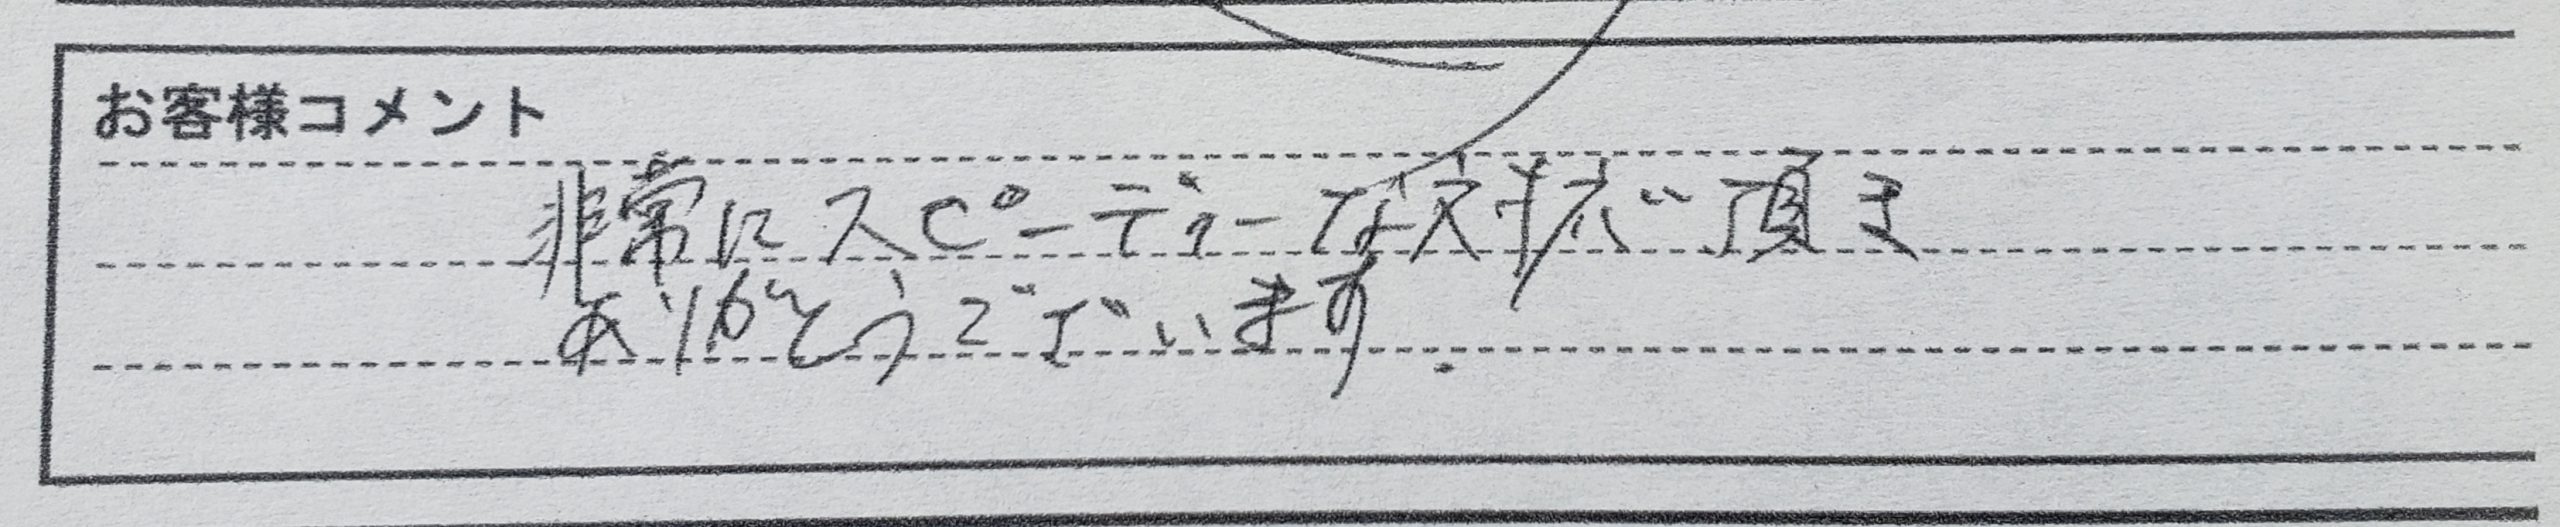 お客様コメント
非常にスピーディーな対応頂き
ありがとうございます.